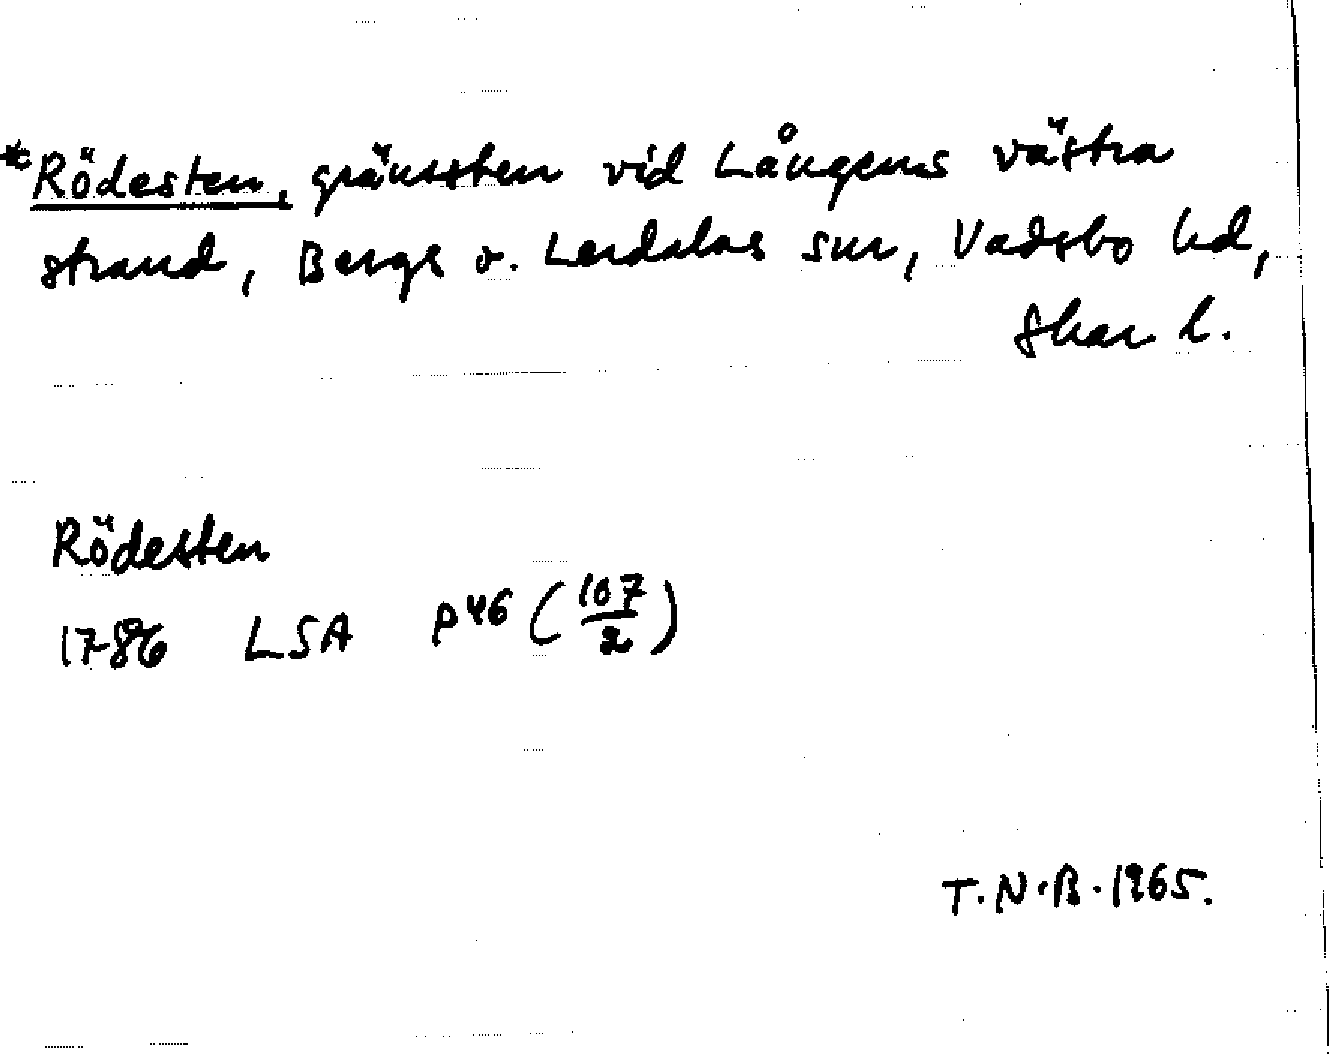 *Rödesten, gränssten vid Långens västra
strand, Bergs o. Lerdalas snr, Vadsbo hd,
Skar. l.
Rödesten
1786 LSA P 46 (107/2)
T.N.B. 1965.